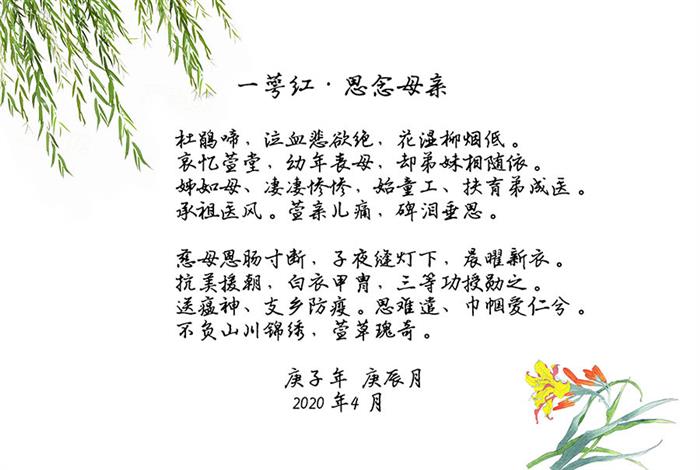 一萼红·思念母亲
杜鹃啼，泣血悲欲绝，花湿柳烟低。
哀忆萱堂，幼年丧母，却弟妹相随依。
姊如母、凄凄惨惨，始童工、扶育弟成医。
承祖医风。萱亲儿痛，碑泪垂思。
慈母恩肠寸断，子夜缝灯下，晨曜新衣。
抗美援朝，白衣甲胄，三等功授勋之。
送瘟神、支乡防疫。思难遣、巾帼爱仁兮。
不负山川锦绣，萱草瑰奇。
庚子年 庚辰月
2020 年4 月